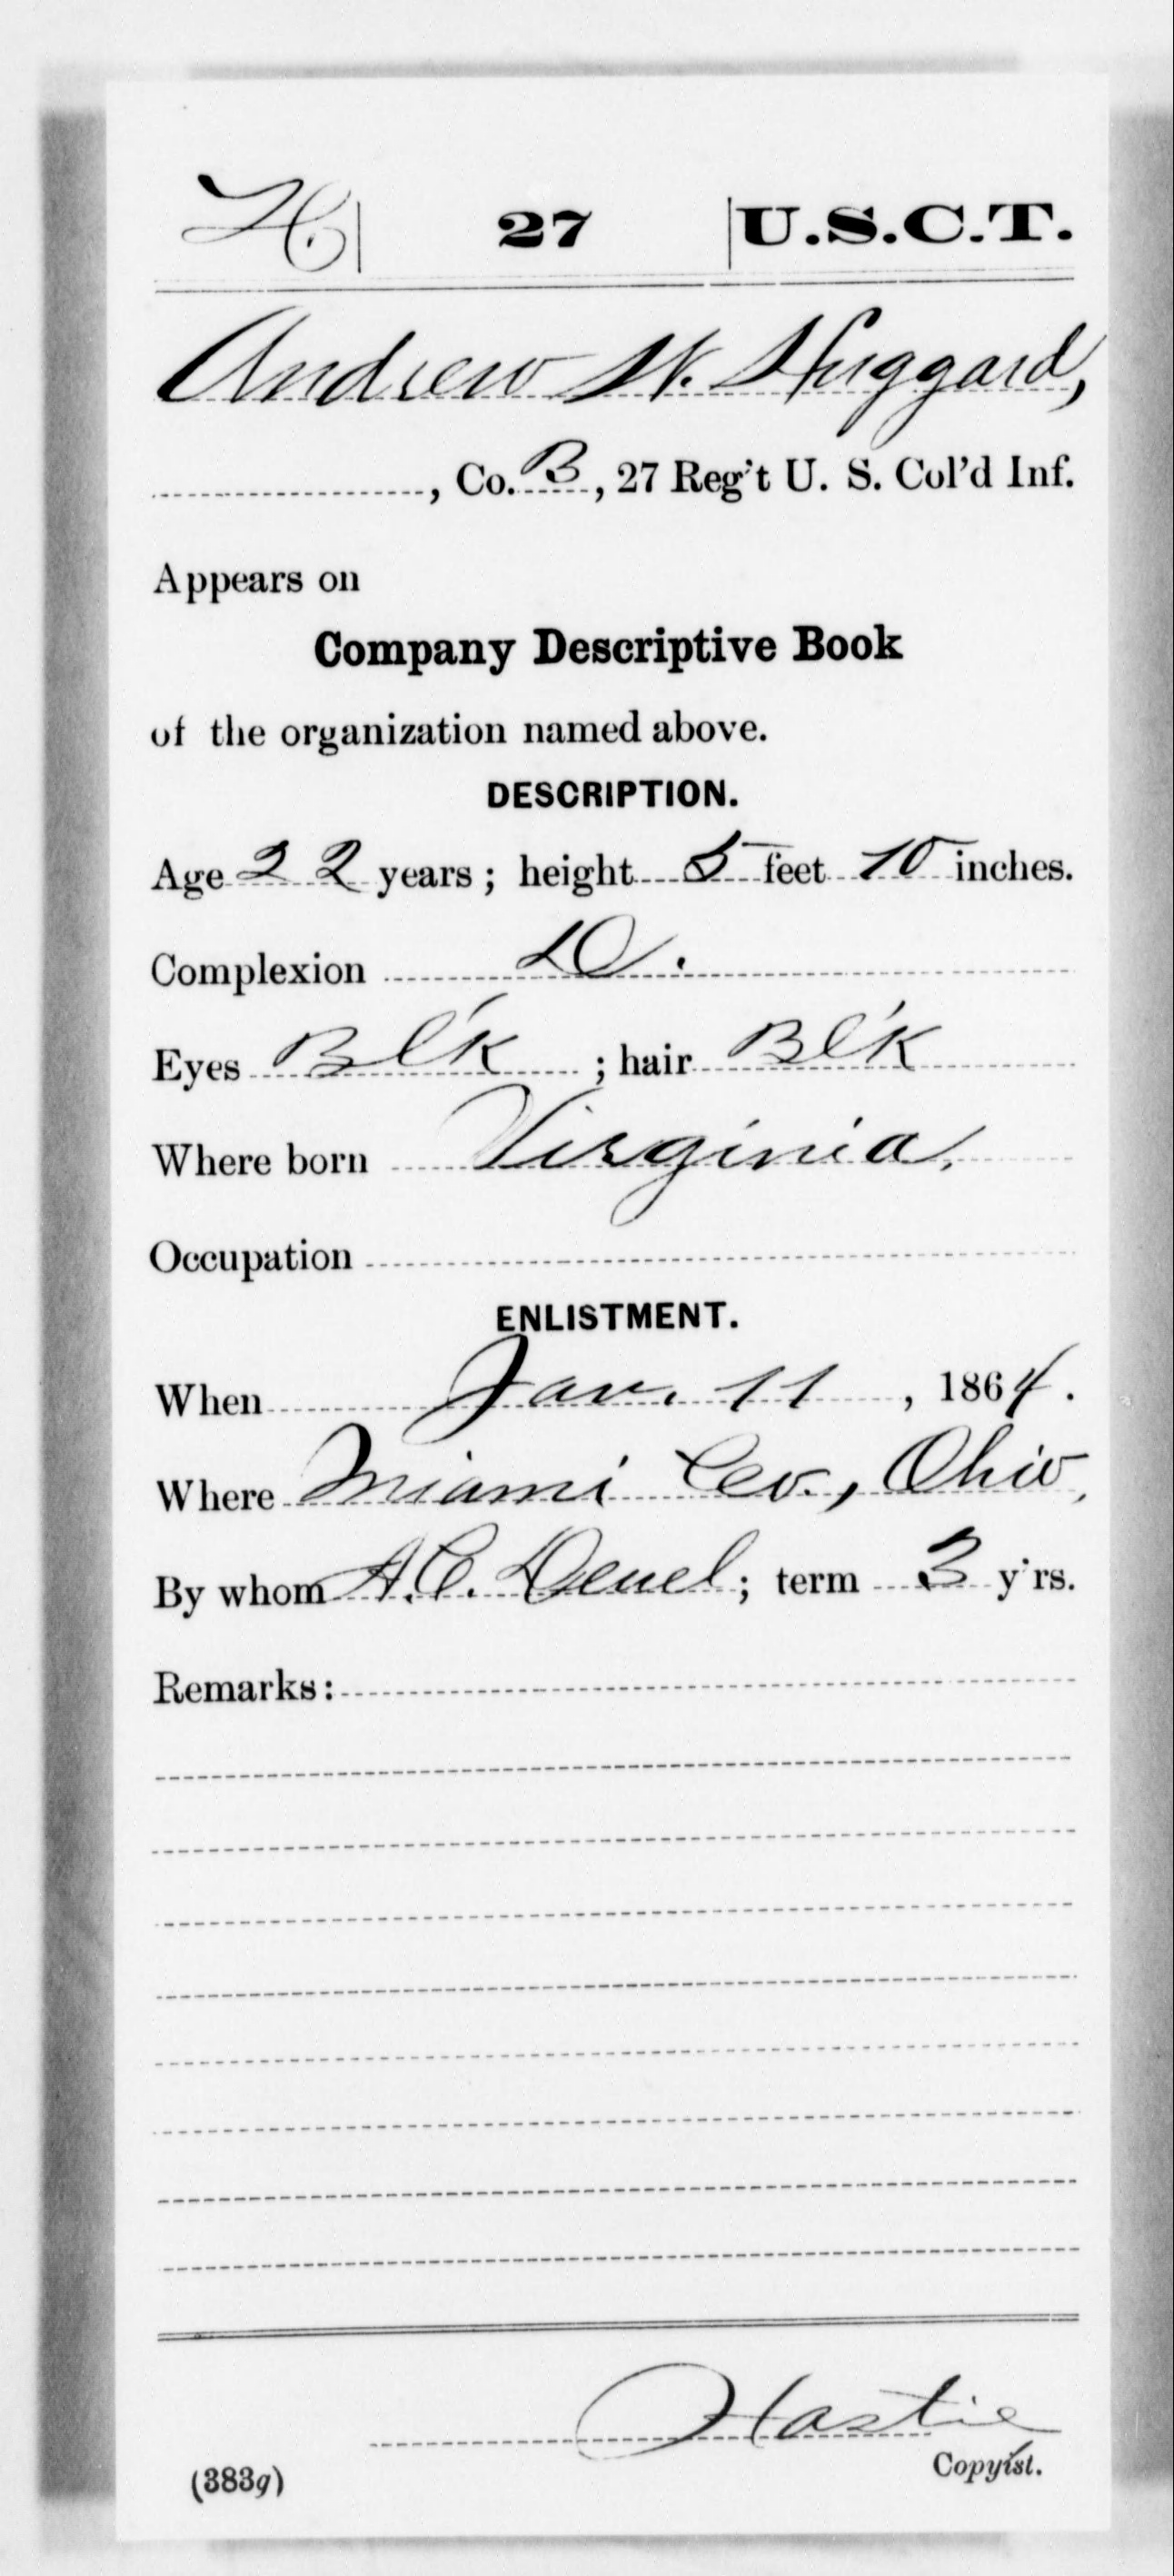 H | 27 | U.S.C.T.
Andrew W. Huggard,
, Co. B, 27 Reg't U. S. Col'd Inf.
Appears on
Company Descriptive Book
of the organization named above.
DESCRIPTION.
Age 22 years; height 5 feet 10 inches.
Complexion D.
Eyes Bl'k ; hair Bl'k
Where born Virginia,
Occupation
ENLISTMENT.
When Jan. 11, 1864.
Where Miami Co., Ohio,
By whom A.C. Deuel; term 3 y'rs.
Remarks:
Hastie
Copyist.
(383g)